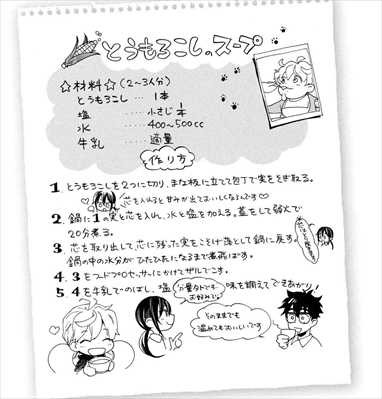 とうもろこしのスープ
☆材料☆(2~3人分)
とうもろこし……1本
塩……小さじ1/2
水……400~500cc
牛乳……適量
作り方
1 とうもろこしを2つに切り、まな板に立てて包丁で実をそぎ取る。
♡芯を入れると甘みが出ておいしくなるんです♡
2. 鍋に1の実と芯を入れ、水と塩を加える。蓋をして弱火で
20分煮る。
3 芯を取り出して芯に残った実をこそげ落として鍋に戻す。
鍋の中の水分がひたひたになるまで煮飛ばす。
4. 3をフードプロセッサーにかけてザルでこす。
5. 4を牛乳でのばし、塩(分量外)で味を調えてできあがり
お好みで
そのままでも
温めてもおいしいです